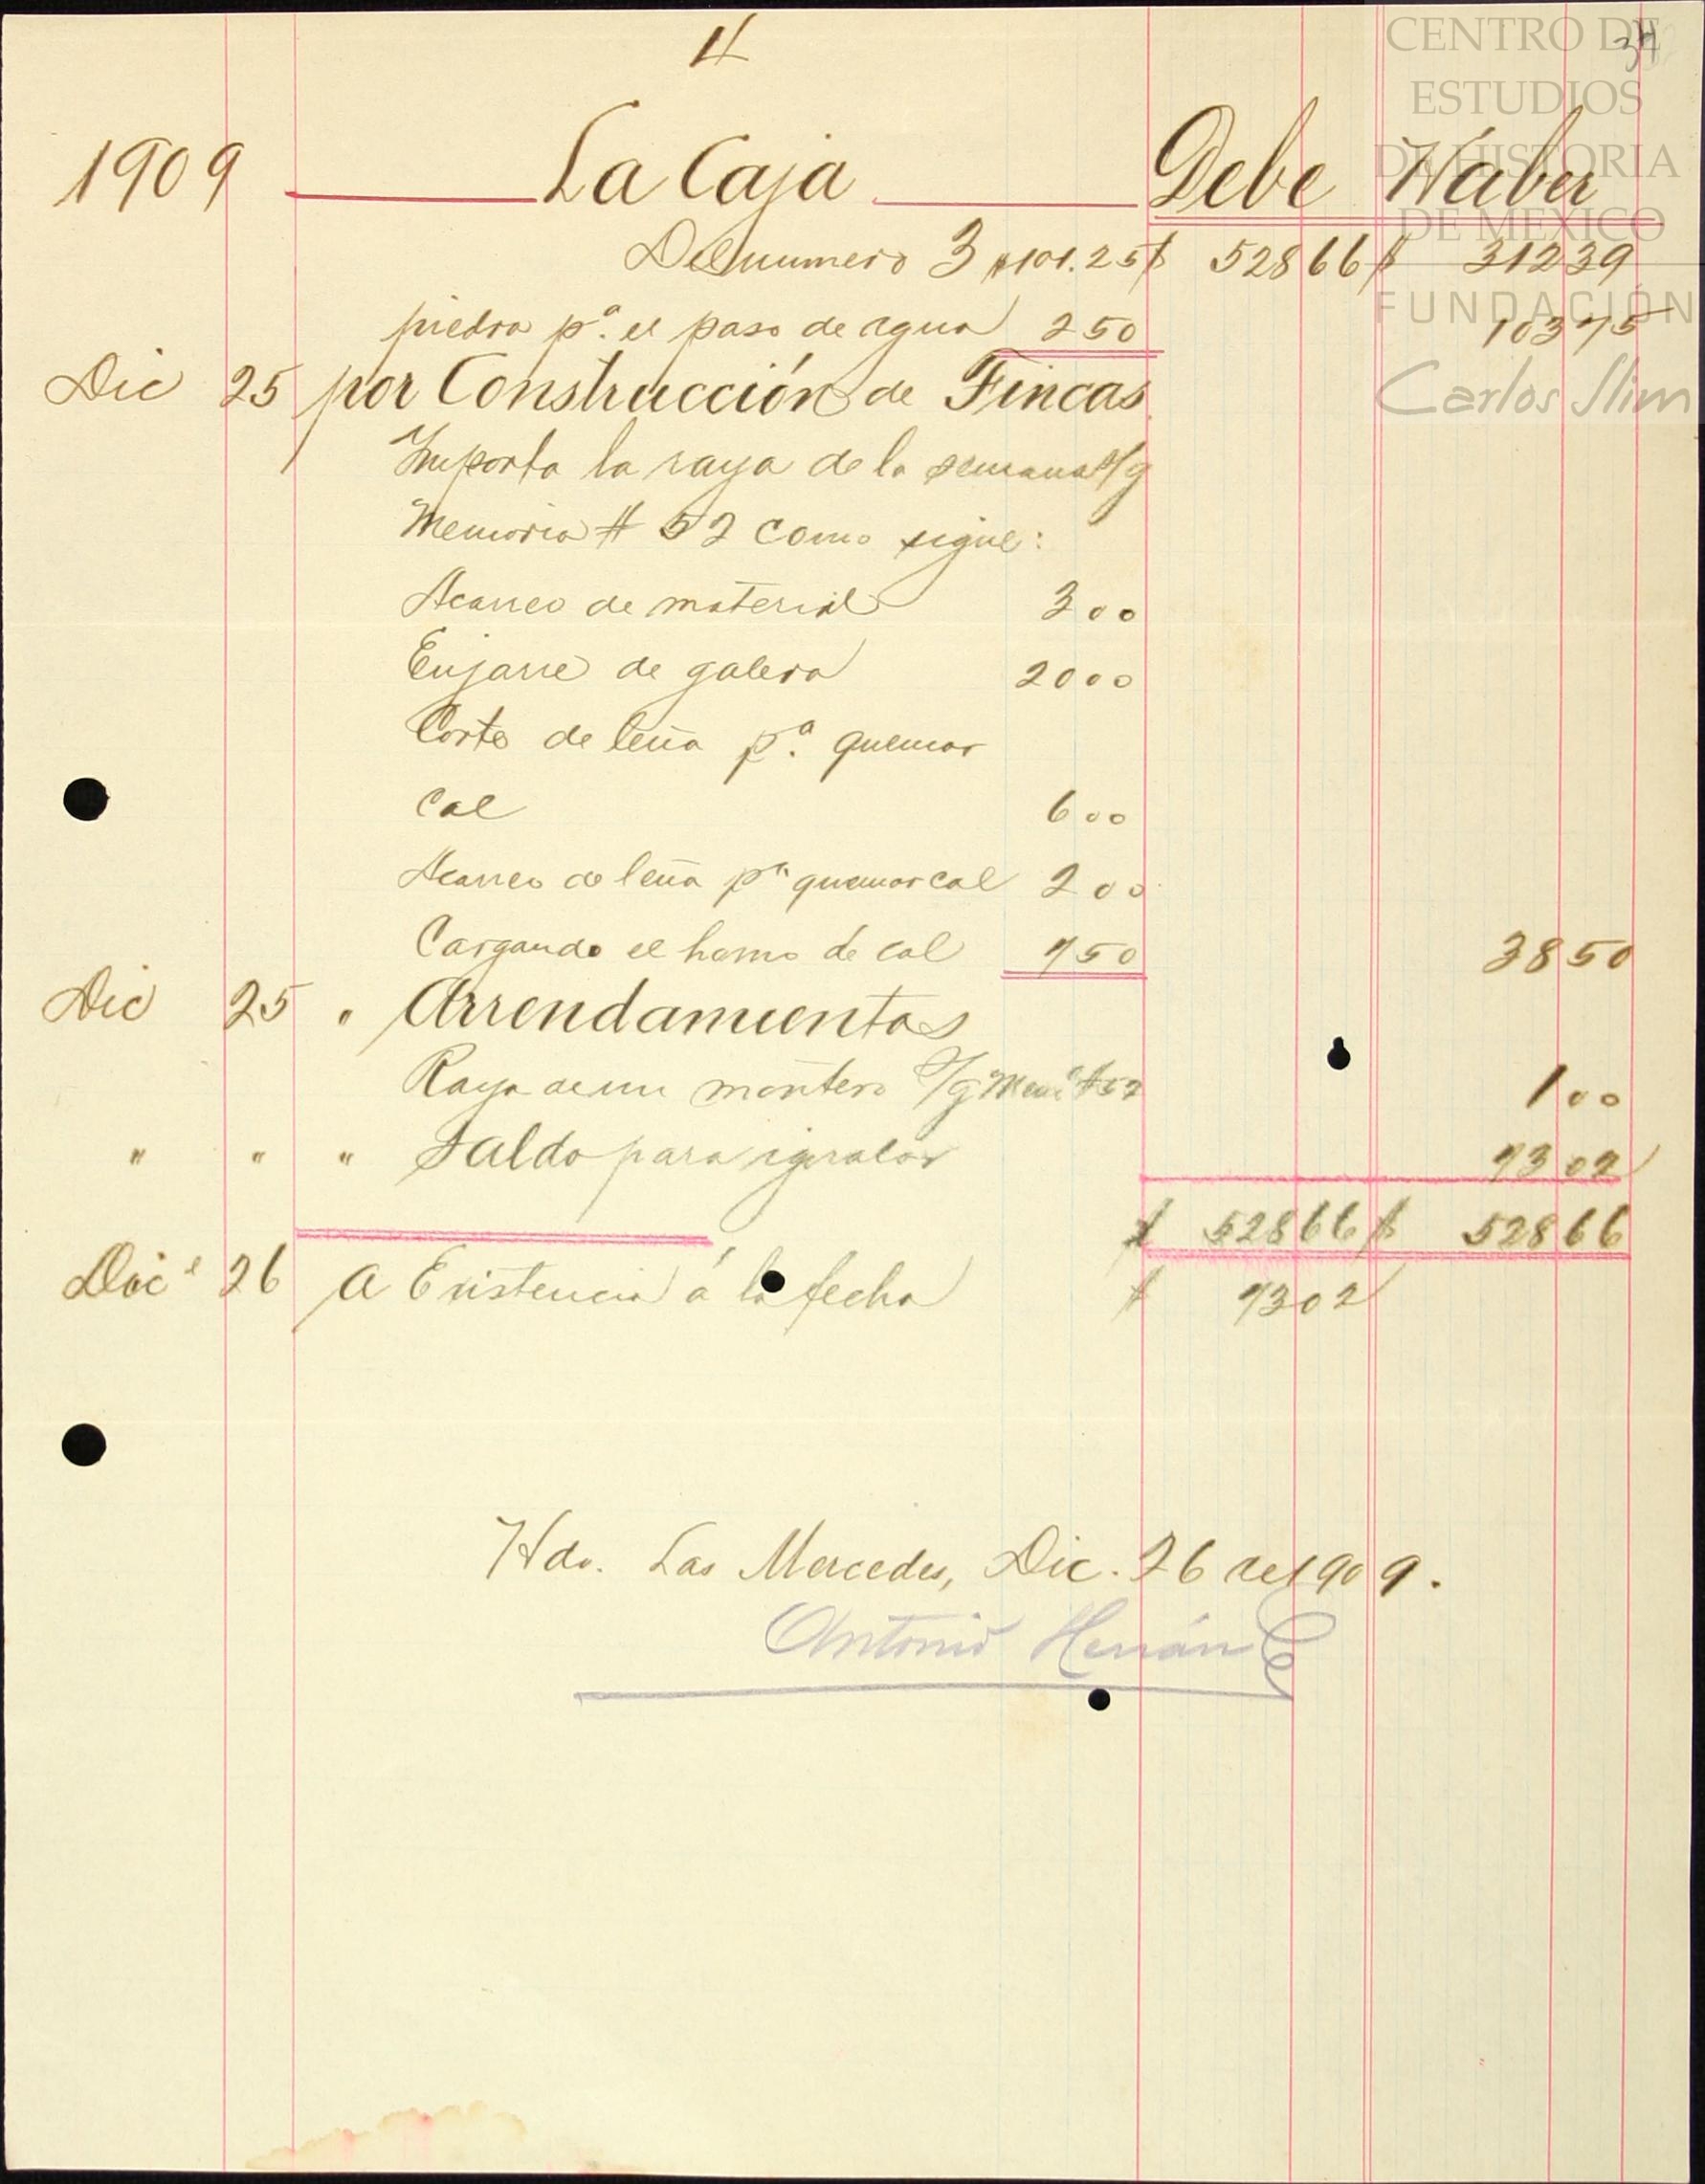 4
34
CENTRO DE
ESTUDIOS
DE HISTORIA
DE MEXICO
FUNDACIÓN
Carlos Slim
1909 La Caja Debe Haber
Del numero 3 $101.25 $ 528 66 $ 312 39
piedra pª. el paso de agua 2 50 103 75
Dic 25 por Construcción de Fincas
Importa la raya de la semana s/g
Memoria # 52 como sigue:
Acarreo de material 3 00
Enjarre de galera 20 00
Corte de leña pª. quemar
cal 6 00
Acarreo de leña pª quemar cal 2 00
Cargando el horno de cal 7 50 38 50
Dic 25 " Arrendamientos
Raya de un montero s/g Memª #52 1 00
" " " Saldo para igualar 73 02
$ 528 66 $ 528 66
Dice 26 A Existencia á la fecha $ 73 02
Hda. Las Mercedes, Dic. 26 de 1909.
Antonio Hernán